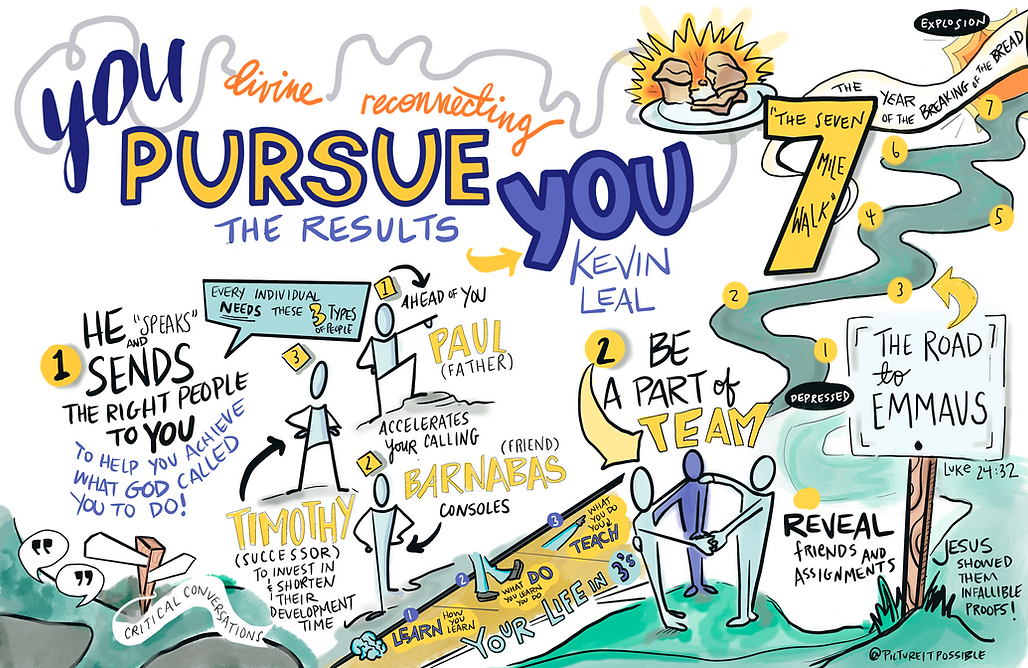 you
divine reconnecting
PURSUE
YOU
THE RESULTS
KEVIN
LEAL
EXPLOSION
THE YEAR
OF THE BREAKING OF THE BREAD
"THE SEVEN
MILE
WALK"
7
7
6
5
4
3
2
1
DEPRESSED
"THE ROAD"
to
EMMAUS
Luke 24:32
JESUS
SHOWED
THEM
INFALLIBLE
PROOFS!
1
HE "SPEAKS"
AND
SENDS
THE RIGHT PEOPLE
TO YOU
TO HELP YOU ACHIEVE
WHAT GOD CALLED
YOU TO DO!
EVERY INDIVIDUAL
NEEDS THESE 3 TYPES
OF PEOPLE
1
AHEAD OF YOU
PAUL
(FATHER)
ACCELERATES
YOUR CALLING
2
(FRIEND)
BARNABAS
CONSOLES
3
TIMOTHY
(SUCCESSOR)
TO INVEST IN
& SHORTEN
THEIR
DEVELOPMENT
TIME
2
BE
A PART of
TEAM
REVEAL
friends AND
ASSIGNMENTS
CRITICAL CONVERSATIONS
1
LEARN HOW
YOU LEARN
2
WHAT DO
YOU LEARN
YOU DO
3
WHAT
YOU DO
YOU
TEACH
YOUR LIFE IN 3's
@PICTUREITPOSSIBLE